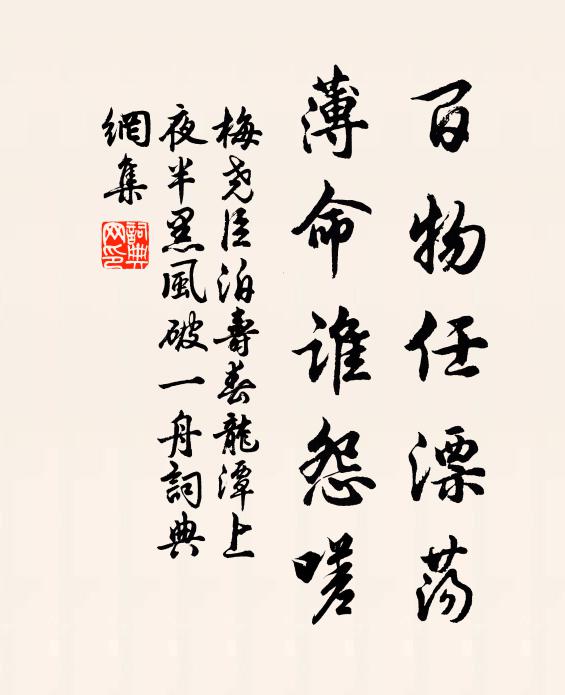 百物任漂荡
薄命谁怨嗟
梅尧臣泊寿春龍潭上
夜半黑風破一舟詞典
網集
詞典
网印